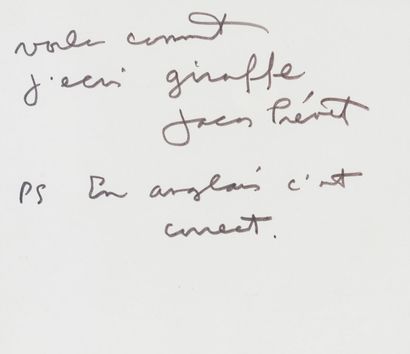 voila comment
j'ecris giraffe
Jacques Prévert
PS En anglais c'est
correct.